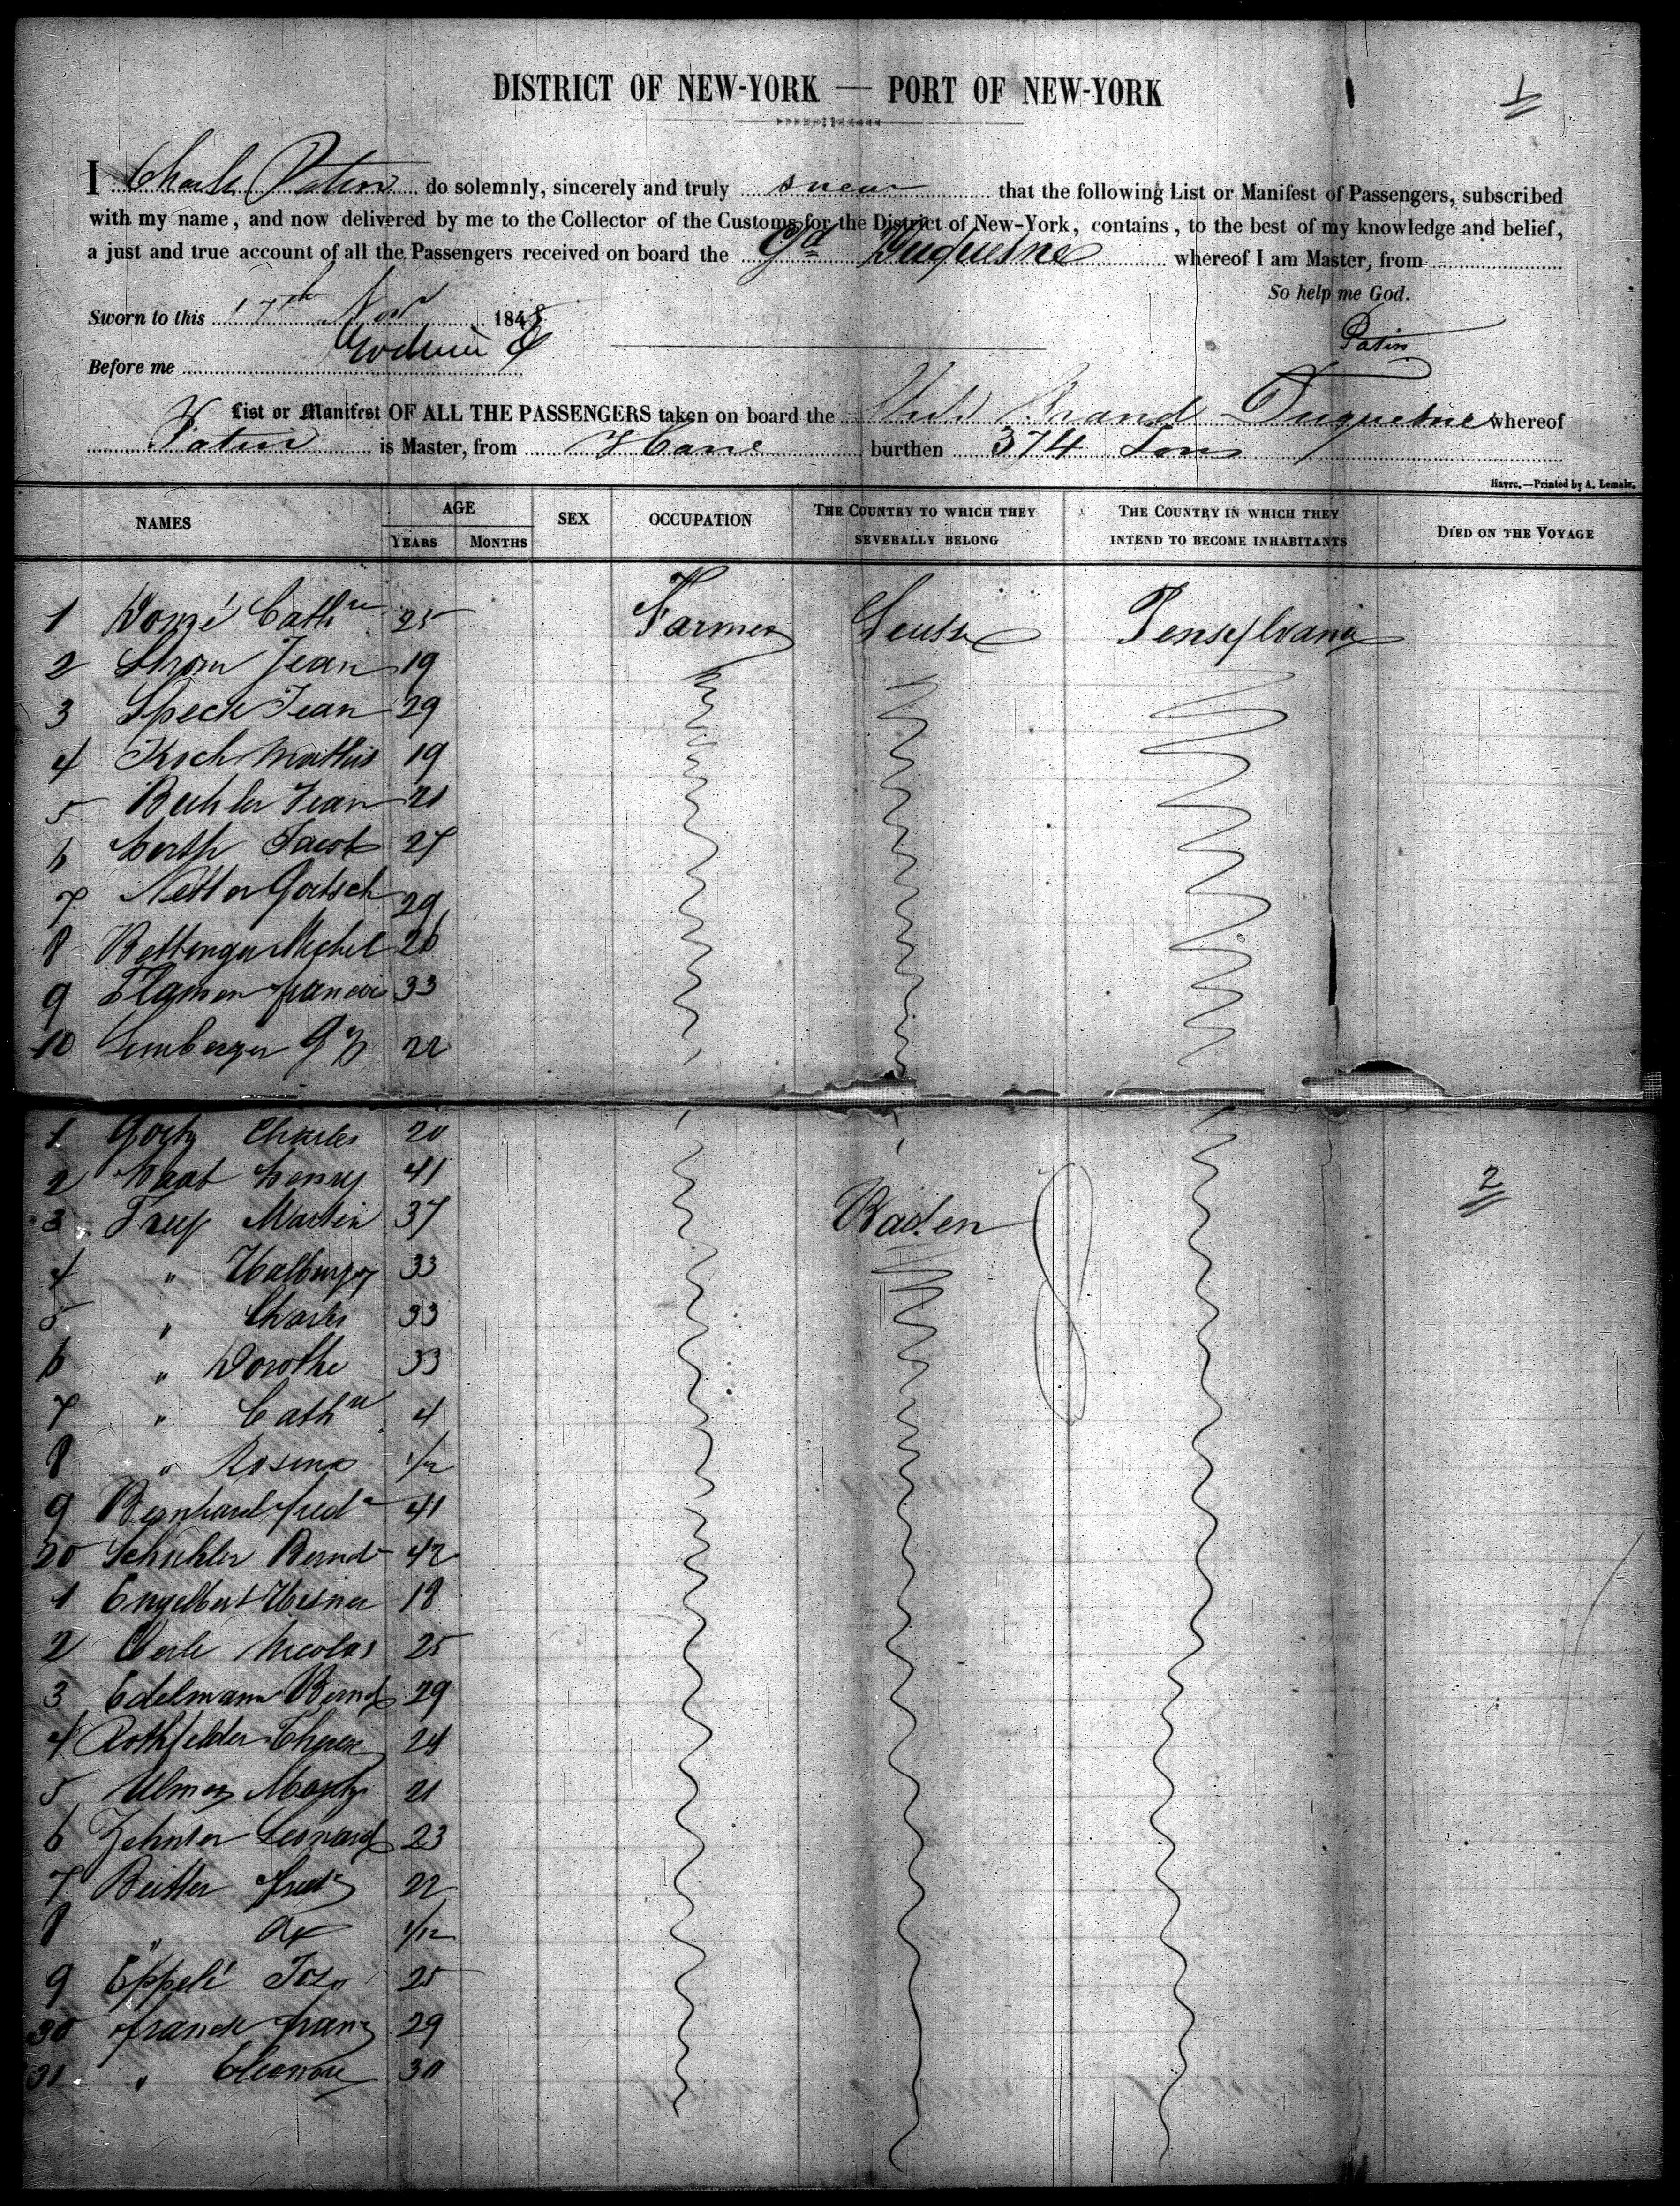 DISTRICT OF NEW-YORK — PORT OF NEW-YORK
1
I Charles Patin do solemnly, sincerely and truly swear that the following List or Manifest of Passengers, subscribed
with my name, and now delivered by me to the Collector of the Customs for the District of New-York, contains, to the best of my knowledge and belief,
a just and true account of all the Passengers received on board the Gd Duquesne whereof I am Master, from
So help me God.
Sworn to this 17th Nov 1848
Patin
Before me
List or Manifest OF ALL THE PASSENGERS taken on board the Grand Duquesne whereof
Patin is Master, from Havre burthen 374 Tons
Havre.—Printed by A. Lemale.
NAMES AGE SEX OCCUPATION THE COUNTRY TO WHICH THEY THE COUNTRY IN WHICH THEY DIED ON THE VOYAGE
YEARS MONTHS SEVERALLY BELONG INTEND TO BECOME INHABITANTS
1 Cathne 25 Farmer Pensylvania
2 Jean 19
3 Speck Jean 29
4 Koch Mathis 19
5 Buhler Jean 21
6 Jacob 27
7 29
8 Bettinger Michel 26
9 33
10 Lemberger 22
1 Charles 20
2 Henry 41
2
3 Martin 37 Baden
4 " Walburga 33
5 " Charles 33
6 " Dorothe 33
7 " Cathne 4
8 " Rosina 1/2
9 Bernhard fred 41
20 Schuhler Bernd 42
1 Engelbert 18
2 Nicolas 25
3 Edelmann Bernd 29
4 Rothfelder Therese 24
5 Ulmer 21
6 Zehnter Leonard 23
7 Beitter fred 22
8 " 1/12
9 Eppelé 25
30 franck franz 29
31 " Eleonore 30